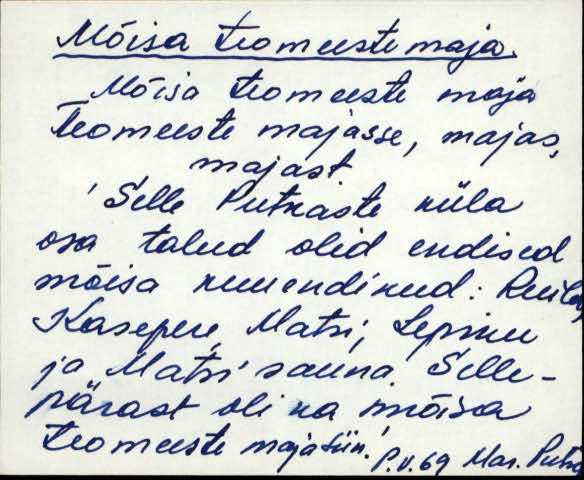 Mõisa teomeeste maja.
Mõisa teomeeste maja
Teomeeste majasse, majas,
majast
'Selle Putkaste küla
osa talud olid endised
mõisa kuuendikud:
Kasepere, Matsi, Lepiku
ja Matsi sauna. Selle-
pärast oli ka mõisa
teomeeste maja siin.'
P.V. 69 Mar.